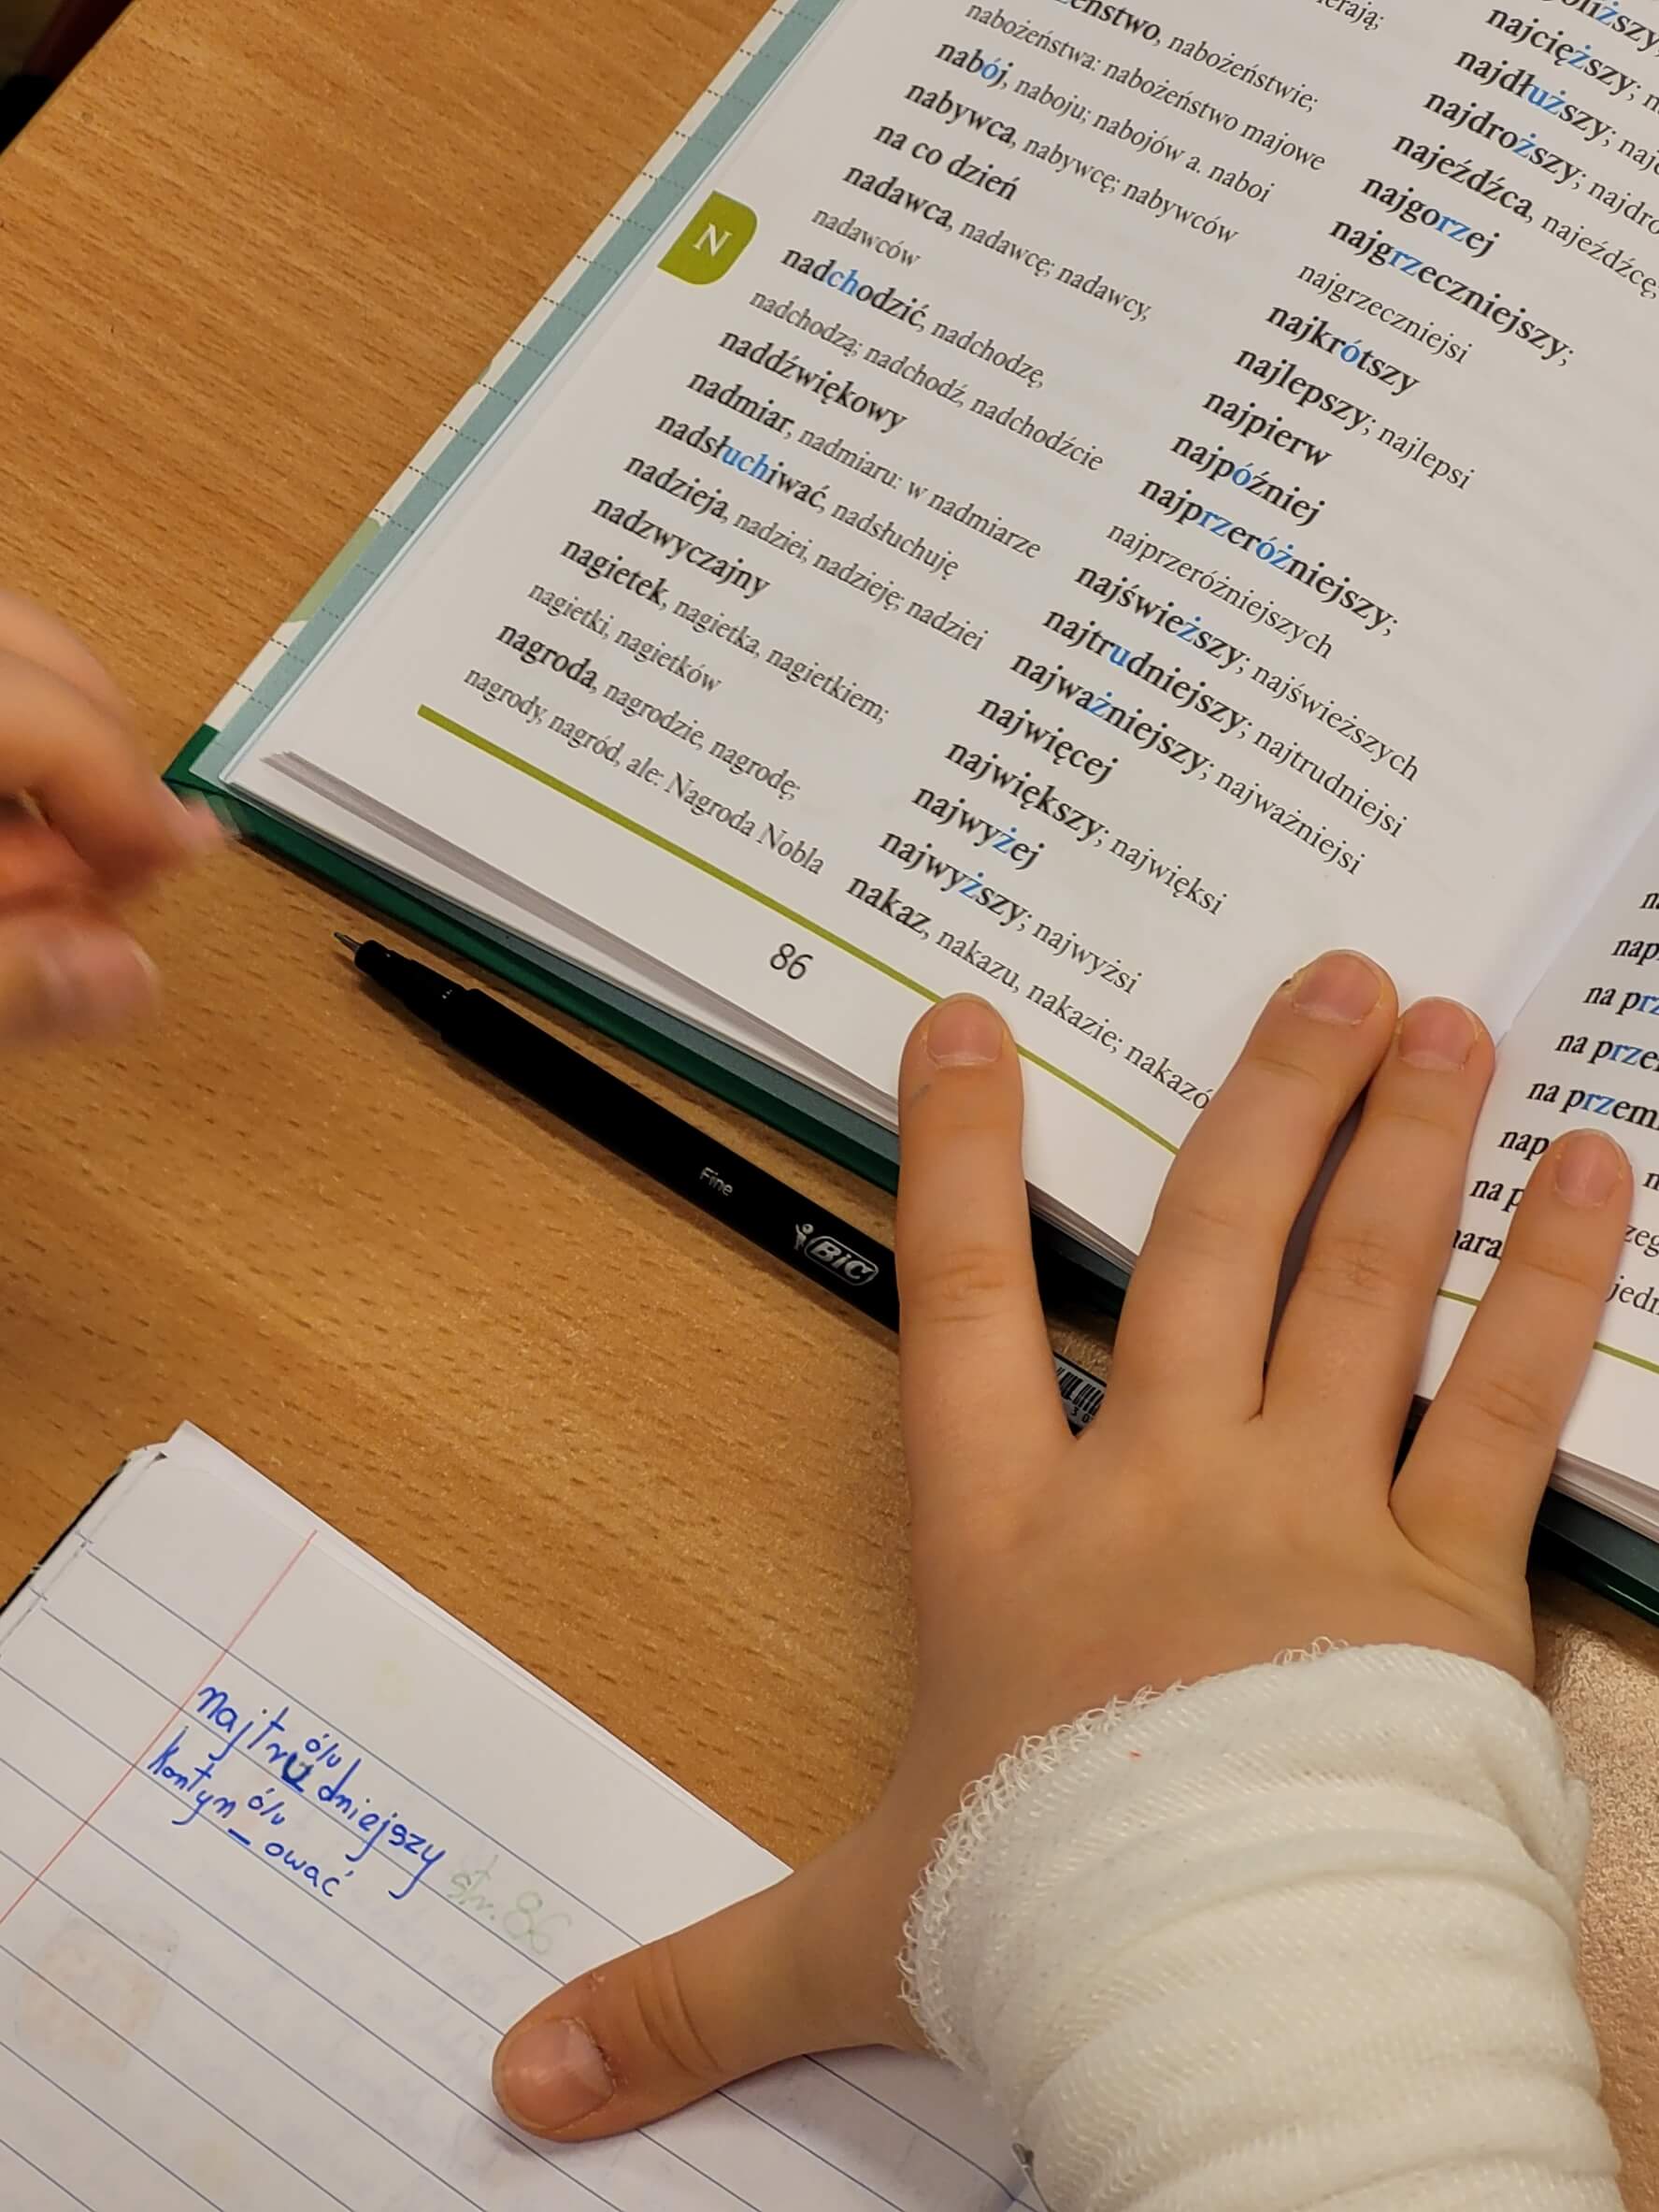 nabożeństwie;
nabożeństwa: nabożeństwo majowe
nabój, naboju; nabojów a. naboi
nabywca, nabywcę; nabywców
na co dzień
nadawca, nadawcę; nadawcy,
nadawców
nadchodzić, nadchodzę,
nadchodzą; nadchodź, nadchodźcie
naddźwiękowy
nadmiar, nadmiaru: w nadmiarze
nadsłuchiwać, nadsłuchuję
nadzieja, nadziei, nadzieję; nadziei
nadzwyczajny
nagietek, nagietka, nagietkiem;
nagietki, nagietków
nagroda, nagrodzie, nagrodę;
nagrody, nagród, ale: Nagroda Nobla
N
86
najcięższy;
najdłuższy;
najdroższy;
najeźdźca, najeźdźcę,
najgorzej
najgrzeczniejszy;
najgrzeczniejsi
najkrótszy
najlepszy; najlepsi
najpierw
najpóźniej
najprzeróżniejszy;
najprzeróżniejszych
najświeższy; najświeższych
najtrudniejszy; najtrudniejsi
najważniejszy; najważniejsi
najwięcej
największy; najwięksi
najwyżej
najwyższy; najwyżsi
nakaz, nakazu, nakazie;
na
na
na
Fine
BIC
ó/u
najtrudniejszy str. 86
ó/u
kontyn_ować